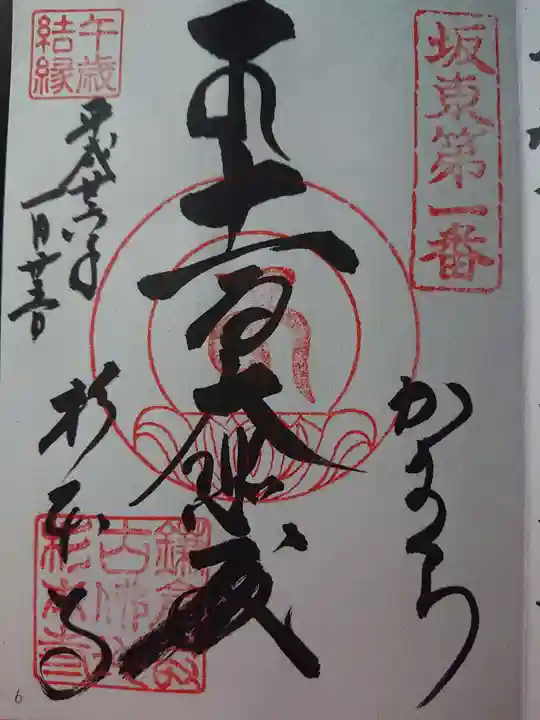 坂東第一番
かまくら
十一面大悲殿
午歳
結縁
平成廿六年
一月
杉本寺
古佛
杉本寺
6